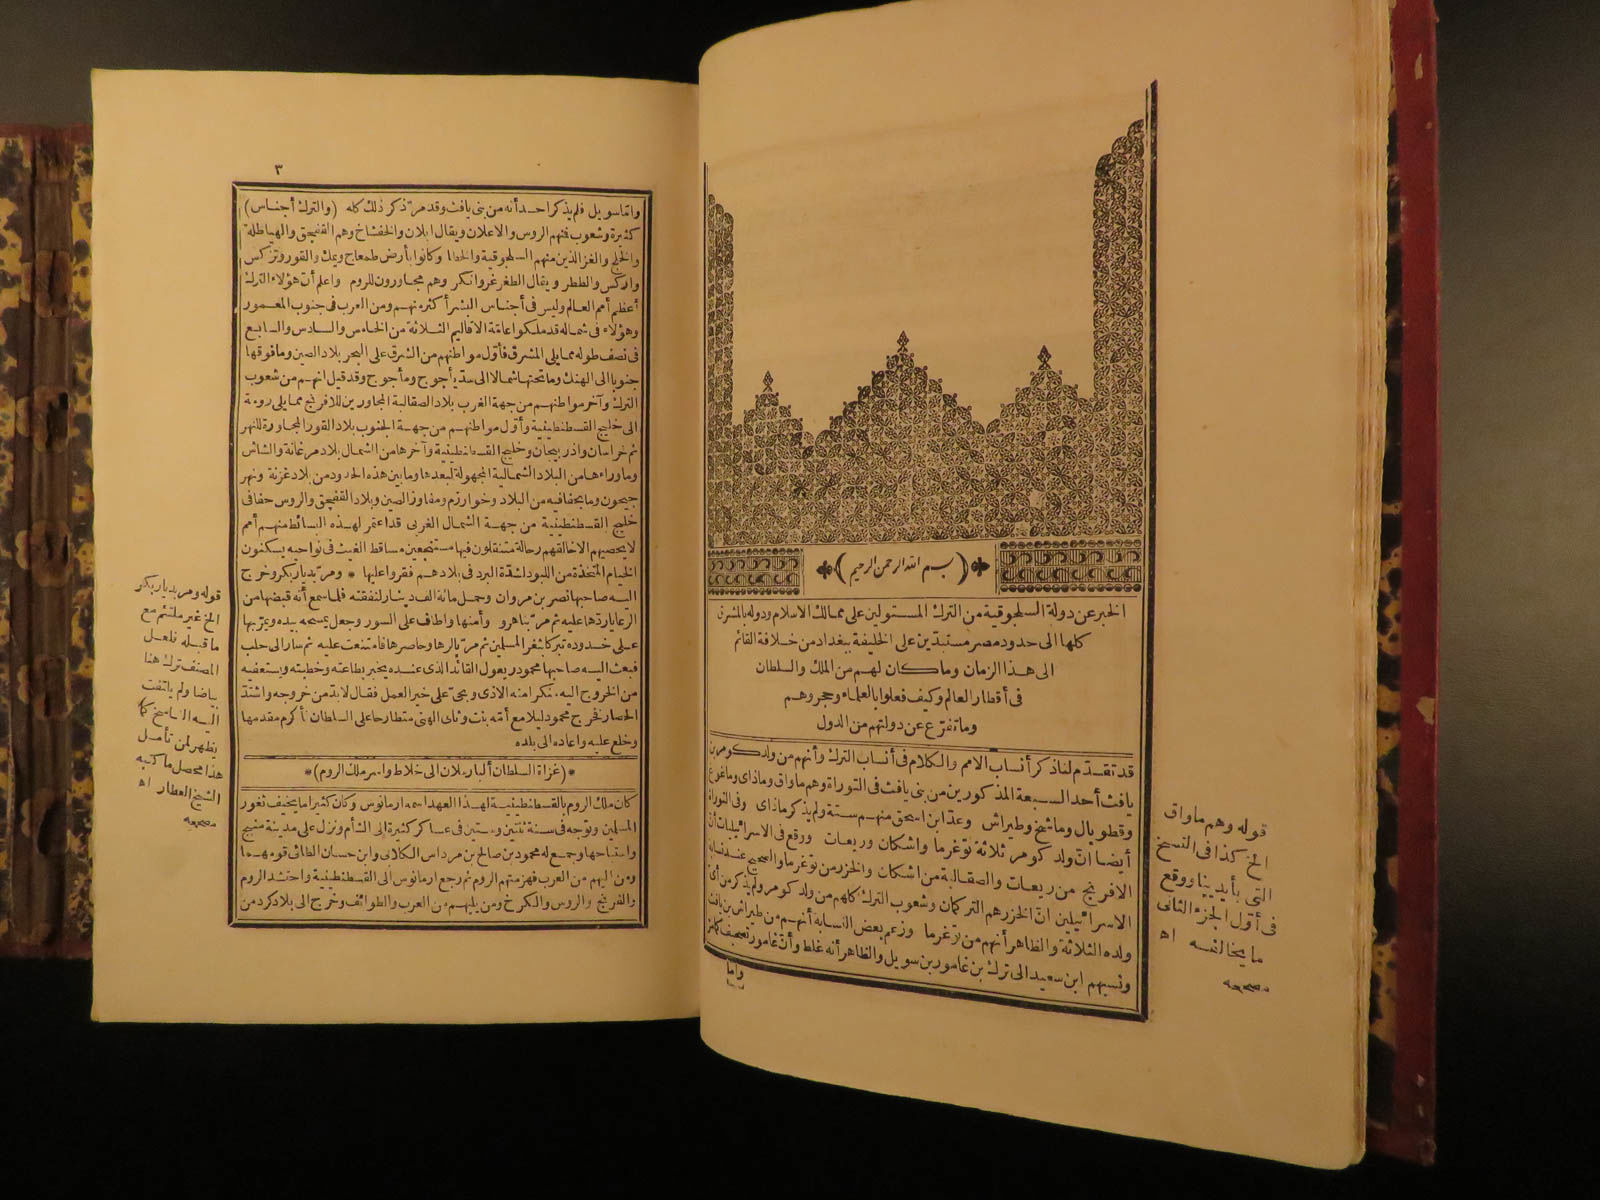 بسم الله الرحمن الرحيم
الخبر عن دولة السلجوقية من الترك المستولين على ممالك الاسلام ودوله بالمشرق
كلها الى حدود مصر مستبدين على الخليفة ببغداد من خلافة القائم
الى هذا الزمان وما كان لهم من الملك والسلطان
فى أقطار العالم وكيف فعلوا بالعلماء وحجروهم
وما تفرّع عن دولتهم من الدول
قد تقدّم لنا ذكر أنساب الامم والكلام فى أنساب الترك وأنهم من ولد كومر بن
يافث أحد السبعة المذكورين من بنى يافث فى التوراة وهم ماواق وماذاى وماغوغ
وقطوبال وماشخ وطيراش وعدّ ابن اسحق منهم ستة ولم يذكر ماذاى وفى التوراة
أيضا انّ ولد كومر ثلاثة توغرما واشكان وريعات ووقع فى الاسرائيليات أن
الافرنج من ريعات والصقالبة من اشكان والخزر من توغرما والصحيح عند نسابة
الاسرائيليين انّ الخزر هم التركمان وشعوب الترك كلهم من ولد كومر ولم يذكر من أى
ولده الثلاثة والظاهر أنهم من توغرما وزعم بعض النسابة أنهم من طيراش بن يافث
ونسبهم ابن سعيد الى ترك بن غامور بن سويل والظاهر أنه غلط وأنّ غامور تصحيف كما مرّ
واما
قوله وهم ماواق
الخ كذا فى النسخ
التى بأيدينا ووقع
فى أول الجزء الثانى
ما يخالفه اه
مصححه
٣
واما سويل فلم يذكر احد أنه من بنى يافث وقد مرّ ذكر ذلك كله (والترك أجناس)
كثيرة وشعوب فمنهم الروس والاعلان ويقال ابلان والخفشاخ وهم القفجق والهياطلة
والخلج والغز الذين منهم السلجوقية والخطا وكانوا بأرض طمغاج ويمك والقور وتزكس
واركس والططر ويقال الطغرغر وانكر وهم مجاورون للروم واعلم أن هؤلاء الترك
أعظم أمم العالم وليس فى أجناس البشر أكثر منهم ومن العرب فى جنوب المعمور
وهؤلاء فى شماله قد ملكوا عامة الاقاليم الثلاثة من الخامس والسادس والسابع
فى نصف طوله مما يلى المشرق فأوّل مواطنهم من الشرق على البحر بلاد الصين وما فوقها
جنوبا الى الهند وما تحتها شمالا الى سدّ يأجوج ومأجوج وقد قيل انهم من شعوب
الترك وآخر مواطنهم من جهة الغرب بلاد الصقالبة المجاورين للافرنج مما يلى رومة
الى خليج القسطنطينية وأوّل مواطنهم من جهة الجنوب بلاد القور المجاورة للنهر
ثم خراسان واذربيجان وخليج القسطنطينية وآخرها من الشمال بلاد فرغانة والشاش
وما وراءها من البلاد الشمالية المجهولة لبعدها وما بين هذه الحدود من بلاد غزنة ونهر
جيحون وما بحفافيه من البلاد وخوارزم ومفاوز الصين وبلاد القفجق والروس حفافى
خليج القسطنطينية من جهة الشمال الغربى قد اعتمر لهذه البسائط منهم أمم
لا يحصيهم الا خالقهم رحالة متنقلون فيها مستنجعين مساقط الغيث فى نواحيه يسكنون
الخيام المتخذة من اللبود لشدّة البرد فى بلادهم فقروا عليها * ومر بديار بكر وخرج
اليه صاحبها نصر بن مروان وحمل مائة ألف دينار لنفقته فلما سمع أنه قبضها من
الرعايا ردّها عليه ثم مرّ بناهرو وأمنها واطاف على السور وجعل يمسحه بيده ويمرّ بها
على خدوده تبركا بثغر المسلمين ثم مرّ بالرها وحاصرها فامتنعت عليه ثم سار الى حلب
فبعث اليه صاحبها محمود رسول القائد الذى عنده يخبر بطاعته وخطبته ويستعفيه
من الخروج اليه منكرا منه الاذى وبحىّ على خير العمل فقال لا بدّ من خروجه واشتدّ
الحصار فخرج محمود ليلا مع أمّه بنت وثاب الهنى متطارحا على السلطان فأكرم مقدمهما
وخلع عليه واعاده الى بلده
* (غزاة السلطان ألب ارسلان الى خلاط واسر ملك الروم) *
كان ملك الروم بالقسطنطينية لهذا العهد اسمه ارمانوس وكان كثيرا ما يخيف ثغور
المسلمين وتوجه فى سنة ثنتين وستين فى عساكر كثيرة الى الشأم ونزل على مدينة منبج
واستباحها وجمع له محمود بن صالح بن مرداس الكلابى وابن حسان الطائى قومهما
ومن اليهم من العرب فهزمتهم الروم ثم رجع ارمانوس الى القسطنطينية واحتشد الروم
والفرنج والروس والكرخ ومن يليهم من العرب والطوائف وخرج الى بلاد كرد من
قوله ومر بديار بكر
الخ غير ملتئم مع
ما قبله فلعل
المصنف ترك هنا
بياضا ولم يلتفت
اليه الناسخ كما
يظهر لمن تأمل
هذا محصل ما كتبه
الشيخ العطار اه
مصححه